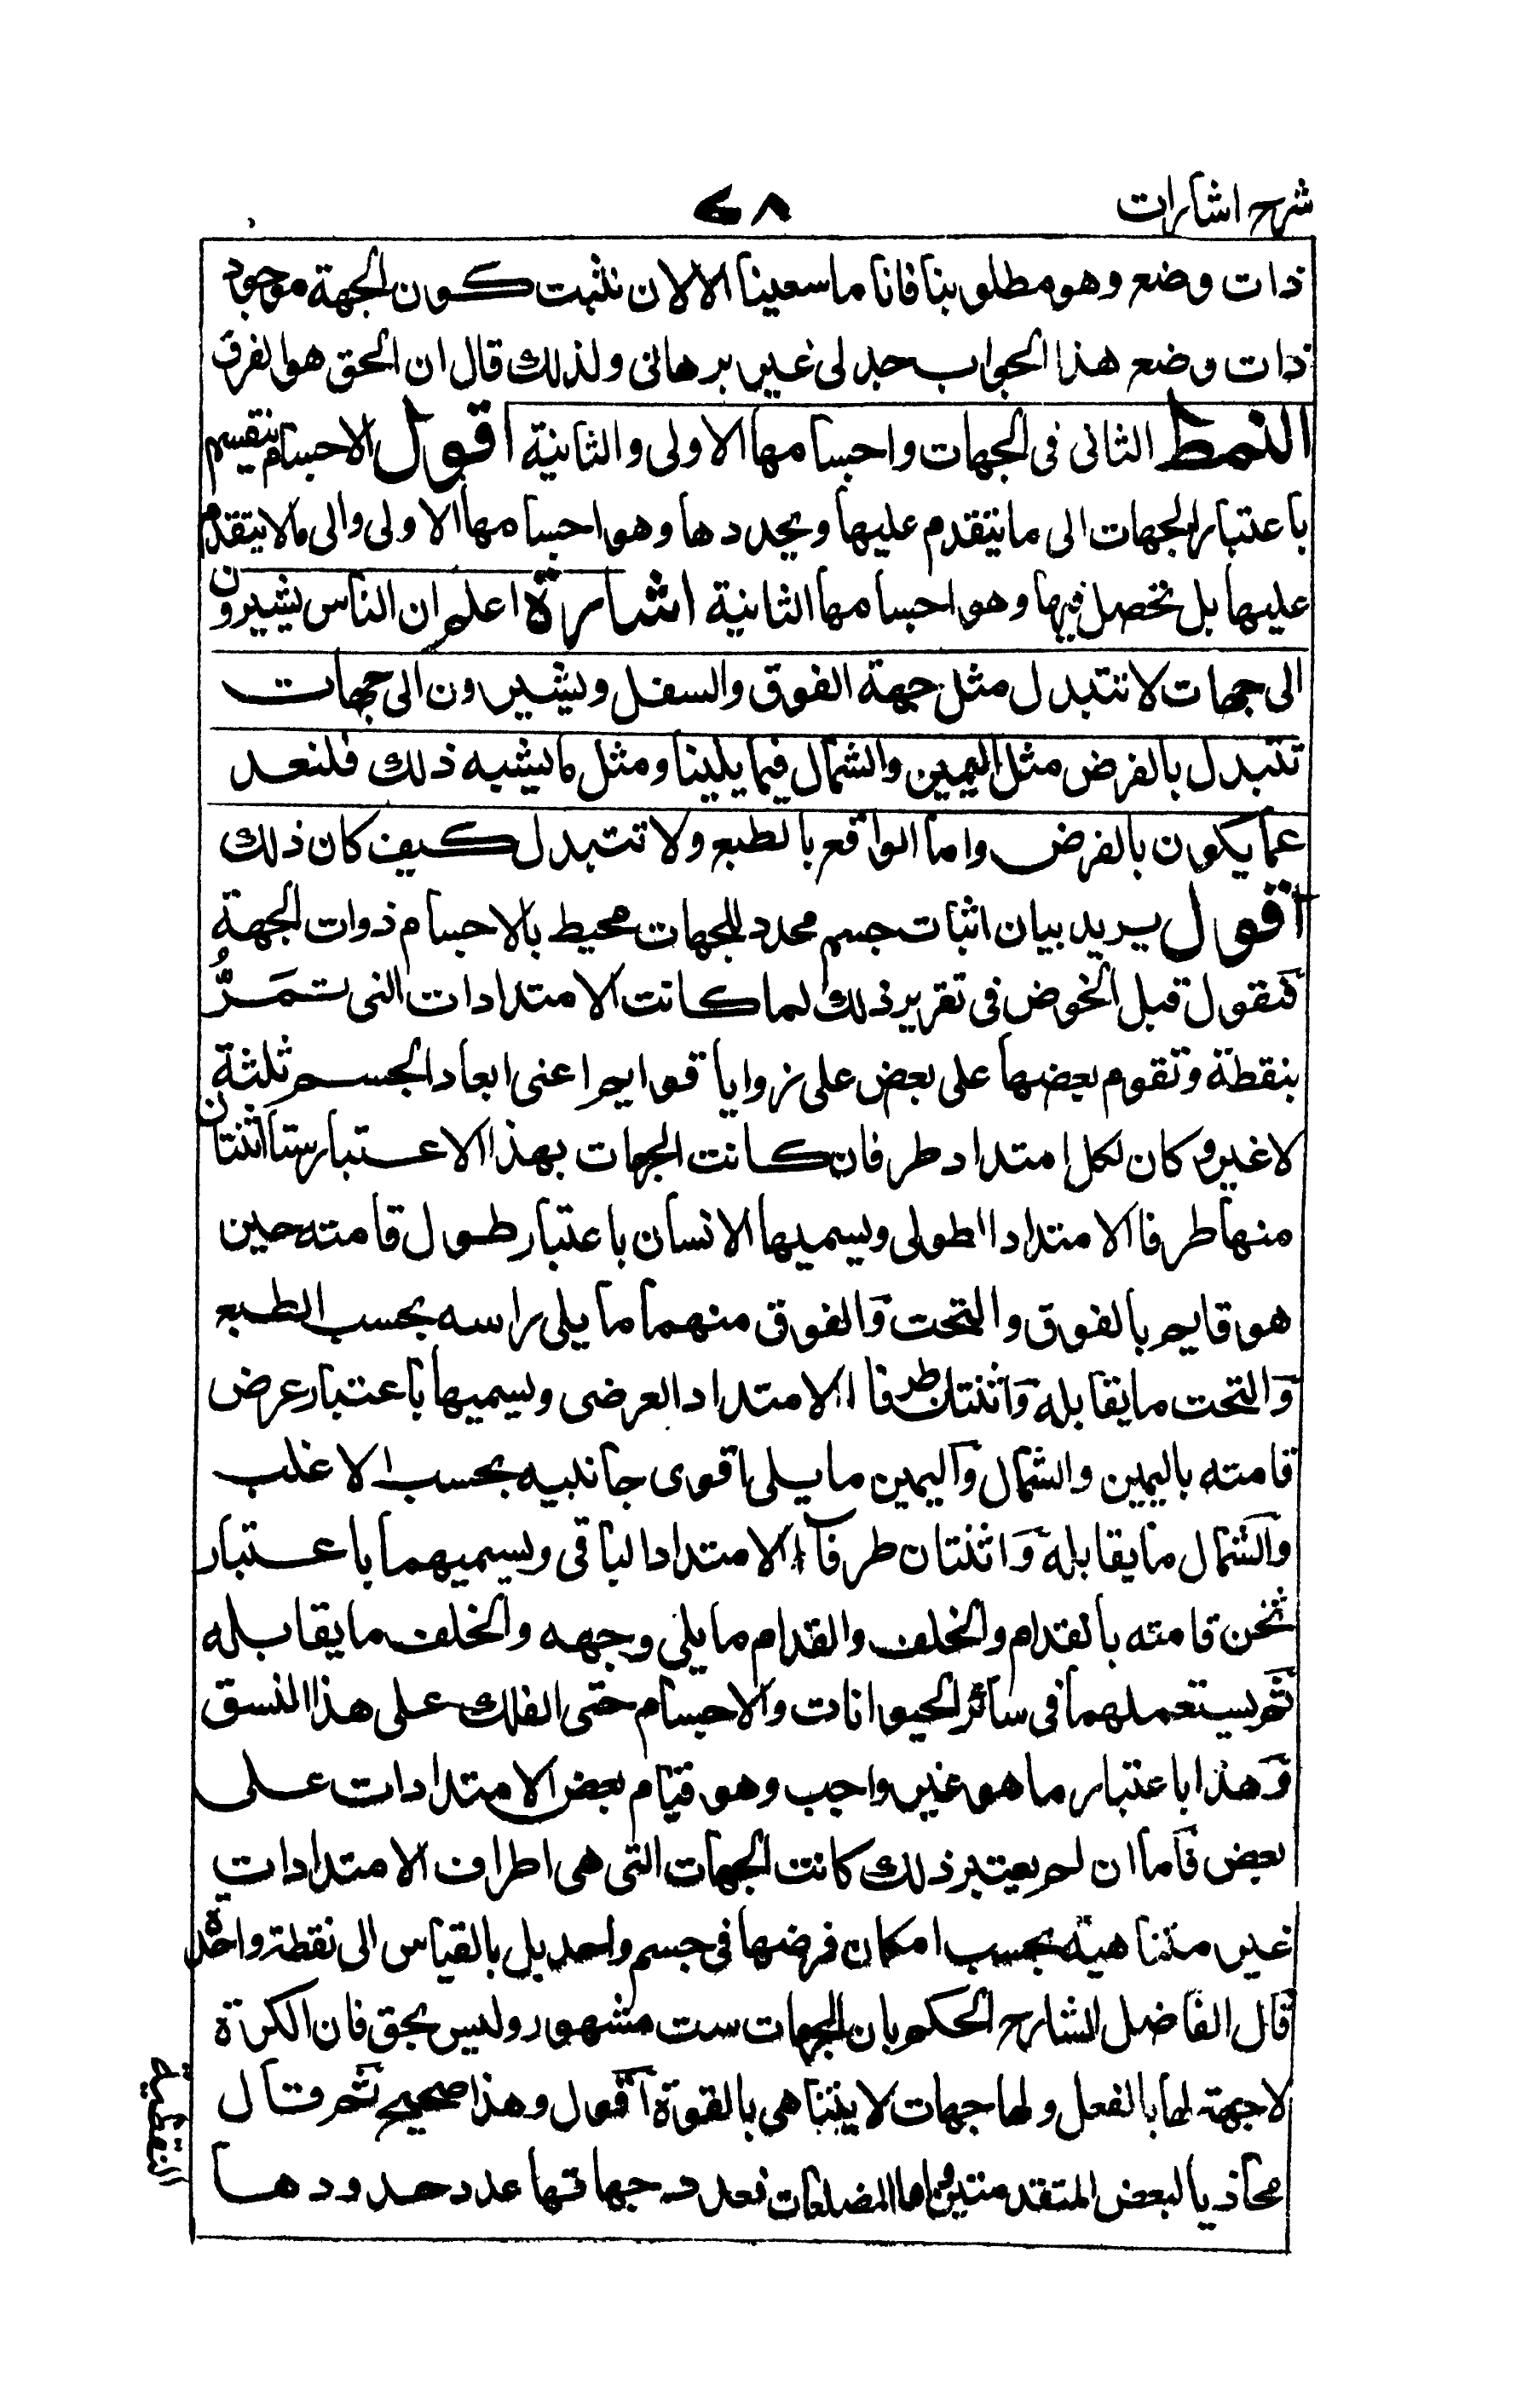 شرح اشارات
٧٨
ذات وضع وهو مطلوبنا فانا ما سعينا الا لان نثبت كون الجهة موجود
ذات وضع هذا الجواب جدلى غير برهانى ولذلك قال ان الحق هو الفرق
النمط الثانى فى الجهات واجسامها الاولى والثانية اقول الاجسام تنقسم
باعتبار الجهات الى ما يتقدم عليها ويحددها وهو اجسامها الاولى والى ما لا يتقدم
عليها بل تحصل فيها وهو اجسامها الثانية اشارة اعلم ان الناس يشيرون
الى جهات لا تتبدل مثل جهة الفوق والسفل ويشيرون الى جهات
تتبدل بالفرض مثل اليمين والشمال فيما يلينا ومثل ما يشبه ذلك فلنعد
عما يكون بالفرض واما الواقع بالطبع ولا تتبدل كيف كان ذلك
اقول يريد بيان اثبات جسم محدد للجهات محيط بالاجسام ذوات الجهة
فنقول قبل الخوض فى تقرير ذلك لما كانت الامتدادات التى تمَرُّ
بنقطة وتقوم بعضها على بعض على زوايا قوايم اعنى ابعاد الجسم ثلثة
لا غير وكان لكل امتداد طرفان كانت الجهات بهذا الاعتبار ستا اثنتان
منها طرفا الامتداد الطولى ويسميها الانسان باعتبار طول قامته حين
هو قايم بالفوق والتحت والفوق منهما ما يلى راسه بحسب الطبع
والتحت ما يقابله واثنتان طرفا الامتداد العرضى ويسميها باعتبار عرض
قامته باليمين والشمال واليمين ما يلى اقوى جانبيه بحسب الاغلب
والشمال ما يقابله واثنتان طرفا الامتداد الباقى ويسميهما باعتبار
ثخن قامته بالقدام والخلف والقدام ما يلى وجهه والخلف ما يقابله
ثم يستعملهما فى سائر الحيوانات والاجسام حتى الفلك على هذا النسق
وهذا باعتبار ما هو غير واجب وهو قيام بعض الامتدادات على
بعض فاما ان لم يعتبر ذلك كانت الجهات التى هى اطراف الامتدادات
غير متناهية بحسب امكان فرضها فى جسم واحد بل بالقياس الى نقطة واحدة
قال الفاضل الشارح الحكم بان الجهات ست مشهور وليس بحق فان الكرة
لا جهة لها بالفعل ولها جهات لا يتناهى بالقوة اقول وهذا صحيح ثم قال
محاذيا لبعض المتقدمتين واما المضلعات فعدد جهاتها عدد حدودها